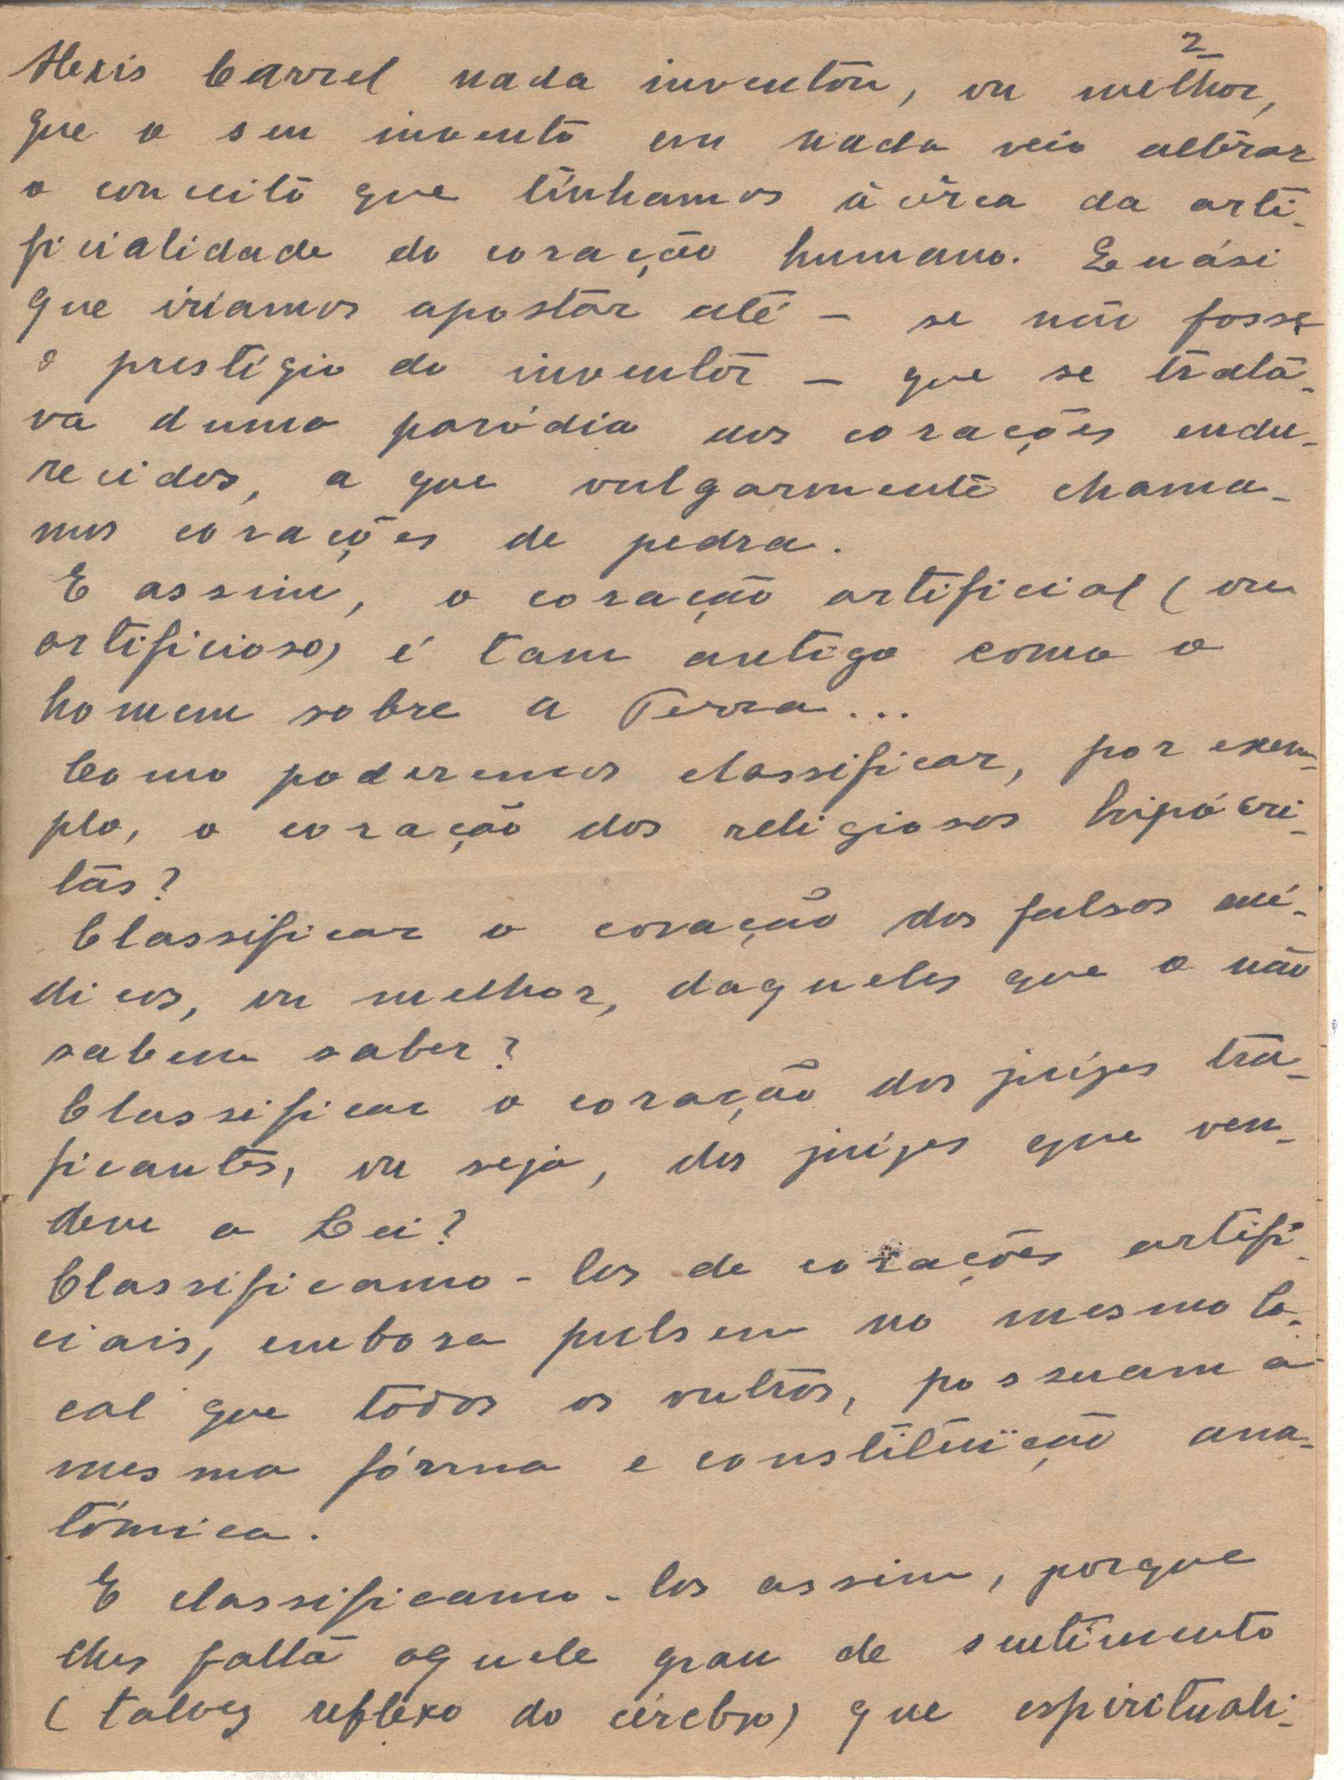 2
Alexis Carrel nada inventou, ou melhor,
que o seu invento em nada veio alterar
o conceito que tinhamos àcêrca da arti-
ficialidade do coração humano. E quási
que iriamos apostar até - se não fosse
o prestígio do inventor - que se trata-
va duma paródia aos corações endu-
recidos, a que vulgarmente chama-
mos corações de pedra.
E assim, o coração artificial (ou
artificioso) é tam antigo como o
homem sobre a Terra...
Como poderemos classificar, por exem-
plo, o coração dos religiosos hipócri-
tas?
Classificar o coração dos falsos mé-
dicos, ou melhor, daqueles que o não
sabem saber?
Classificar o coração dos juízes tra-
ficantes, ou seja, dos juízes que ven-
dem a Lei?
Classificamo-los de corações artifi-
ciais, embora pulsem no mesmo lo-
cal que todos os outros, possuam a
mesma fórma e constitüição ana-
tómica.
E classificamo-los assim, porque
lhes falta aquele grau de sentimento
(talvez reflexo do cérebro) que espirituali-